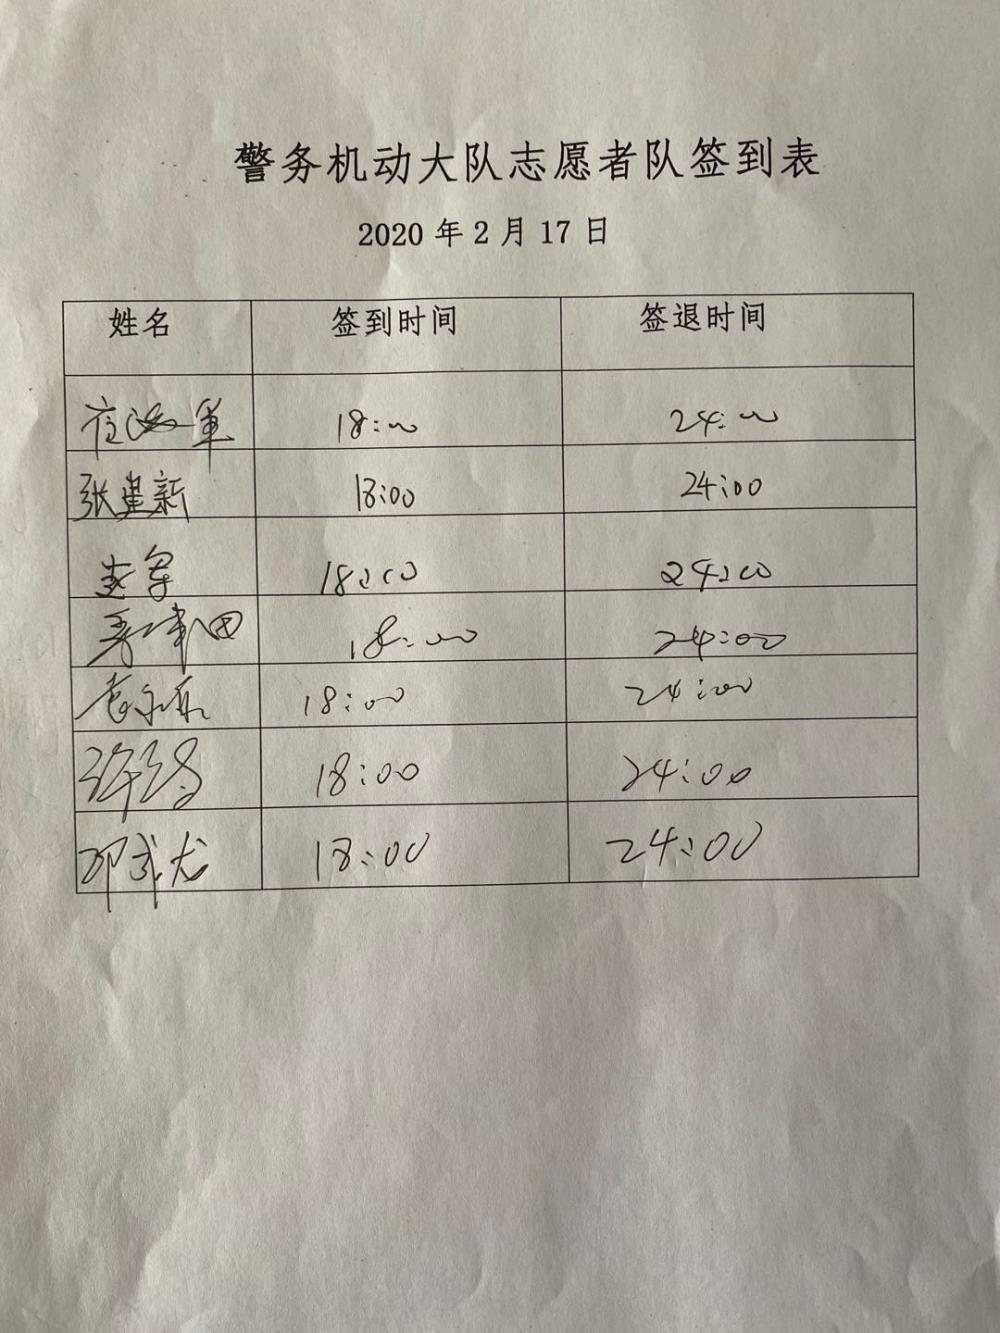 警务机动大队志愿者队签到表
2020 年 2 月 17 日
姓名 签到时间 签退时间
18:00 24:00
张建新 18:00 24:00
18:00 24:00
18:00 24:00
18:00 24:00
18:00 24:00
邓成龙 18:00 24:00